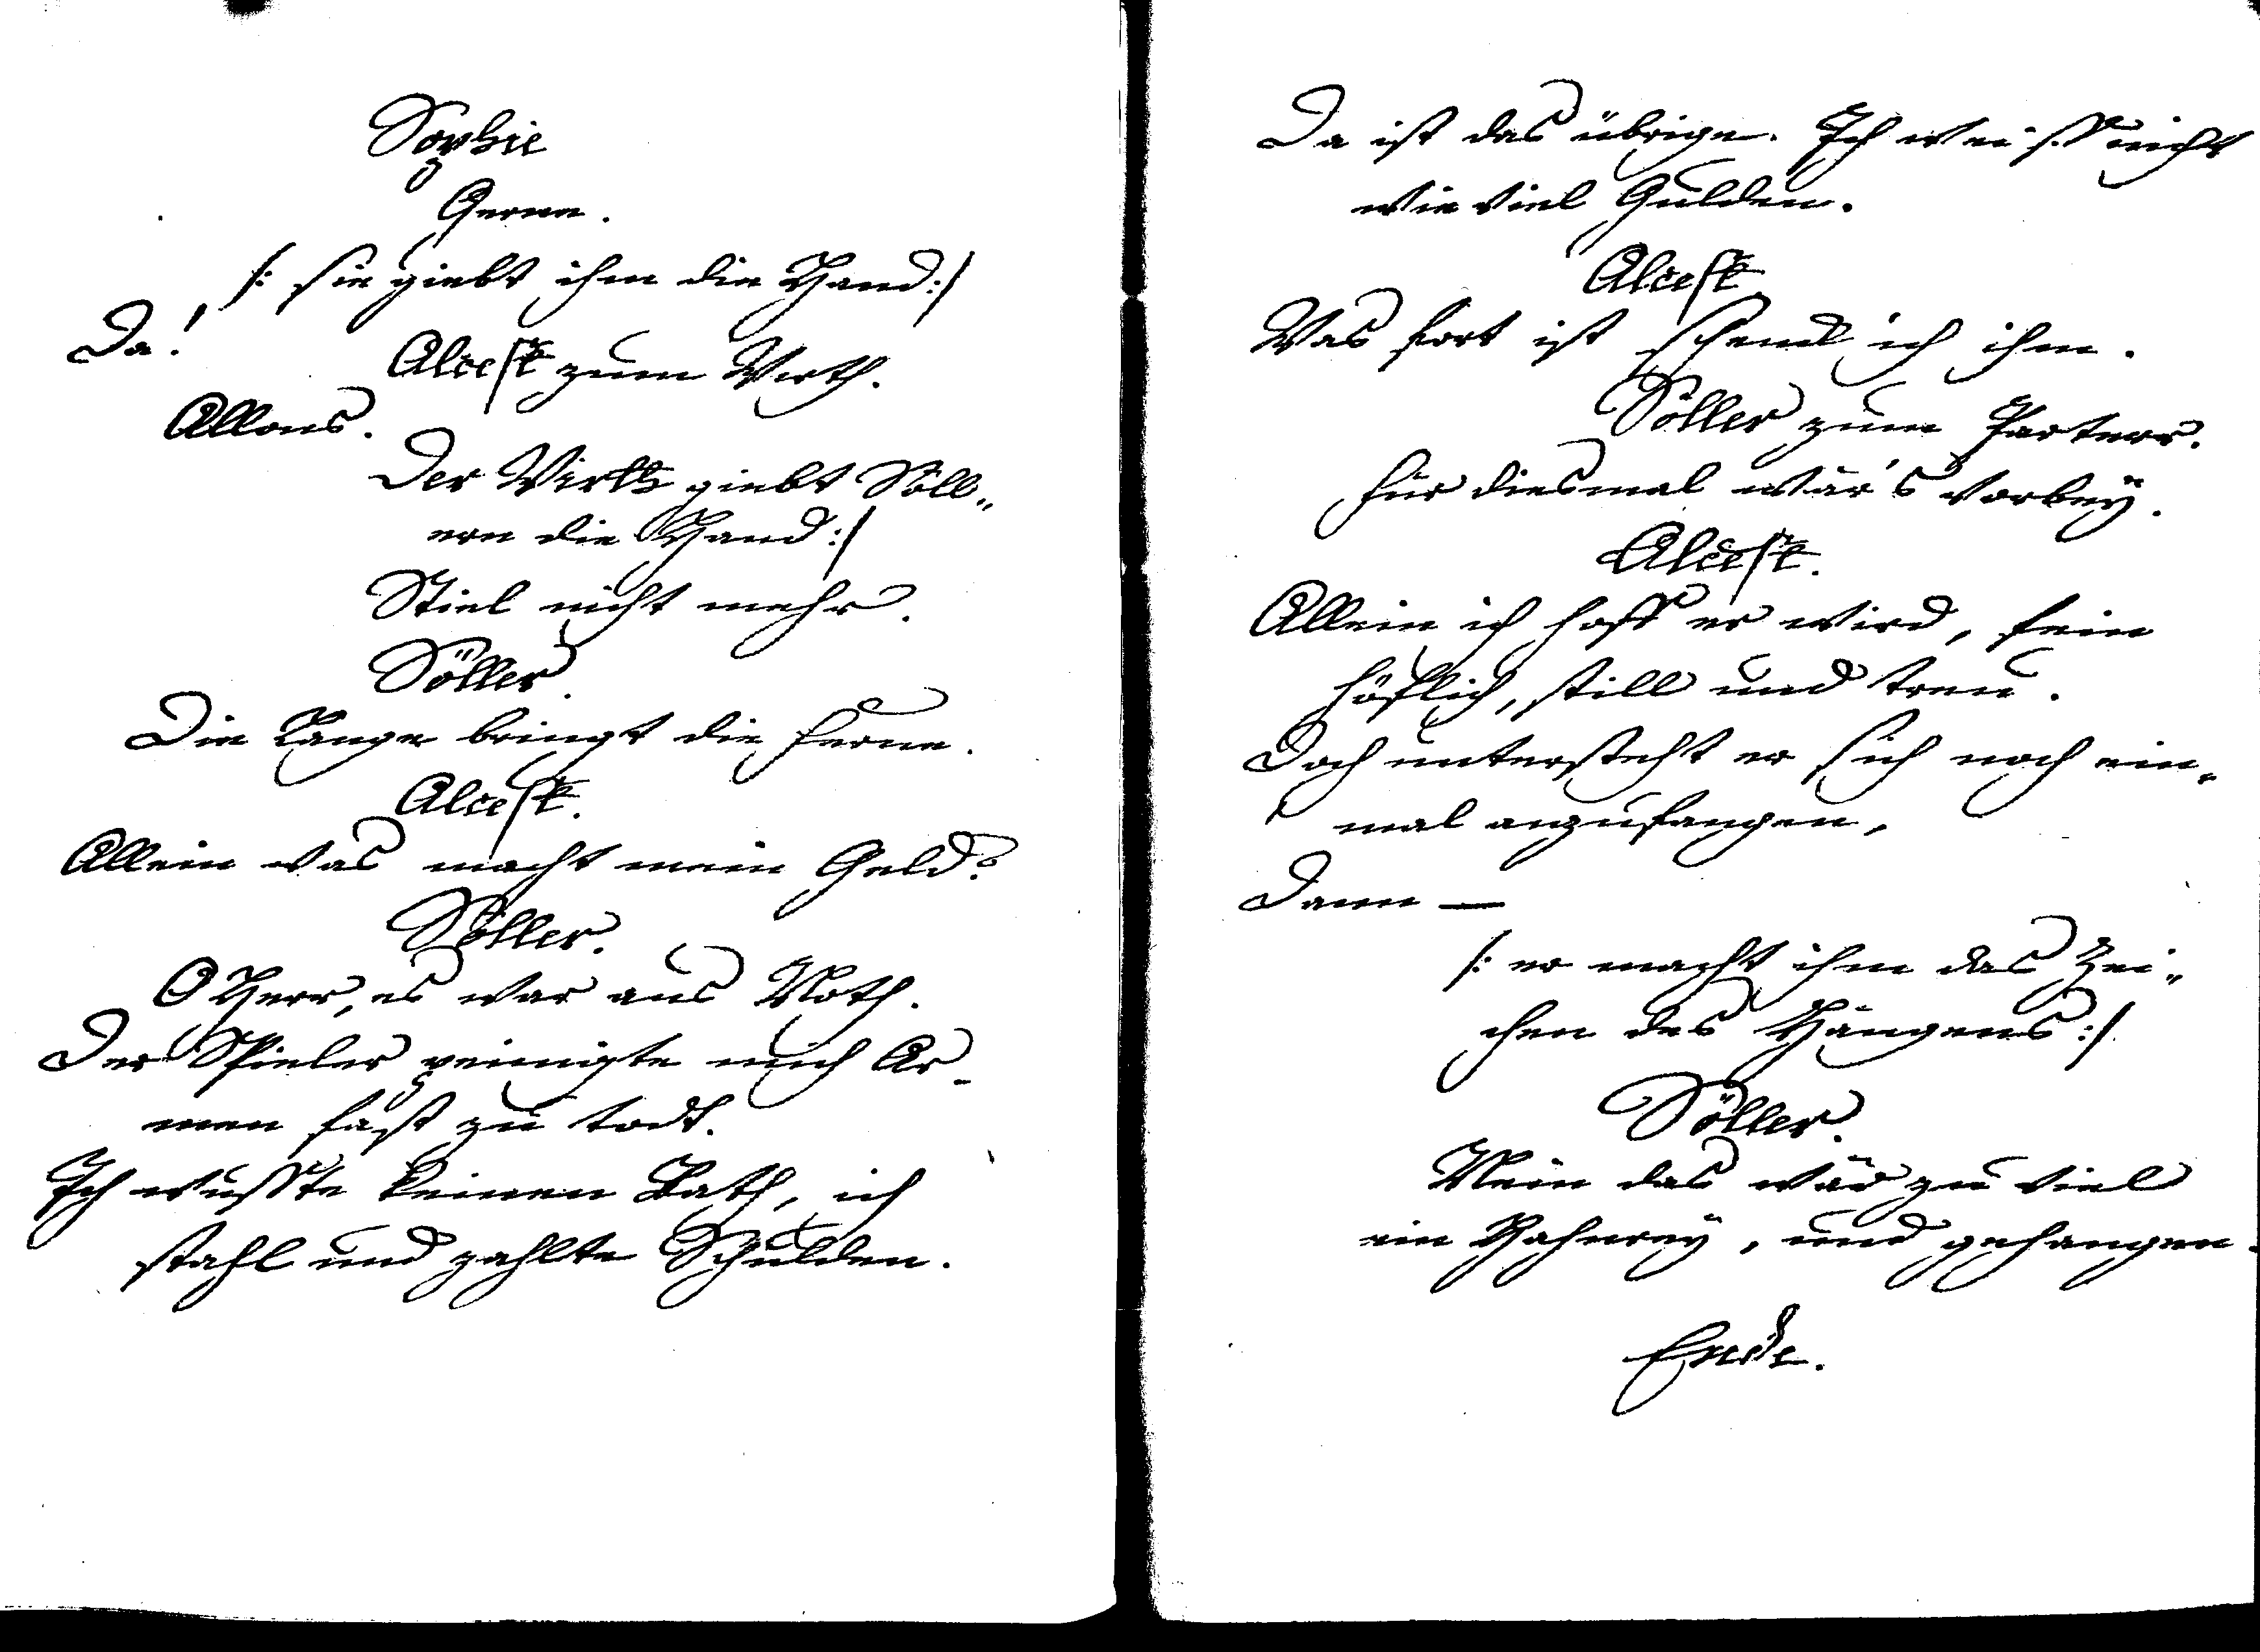 Sophie
Gerne.
/: sie giebt ihm die Hand:/
Da!
Alcest zum Wirth.
Allons.
Der Wirth giebt Söll„
ern die Hand:/
Stiel nicht mehr.
Söller.
Die Länge bringt die Ferne.
Alcest.
Allein was macht mein Geld?
Söller.
O Herr, es war aus Noth.
Der Spieler peinigte mich Ar„
men fast zu todt.
Ich wusste keinen Rath, ich
stahl und zahlte Schulden.
Da ist das übrige. Ich weiss nicht
wie viel Gulden.
Alcest
Was fort ist schenck ich ihm.
Söller zum Parterr.
Für diesmal wär's vorbey.
Alcest.
Allein ich hoff er wird, fein
höflich, still und treu.
Doch untersteht er sich noch ein„
mal anzufangen,
Dann —
/: er macht ihm das Zei„
chen des Hängens:/
Söller.
Nein das wär zu viel
ein Hahnrey, und gehangen.
Ende.